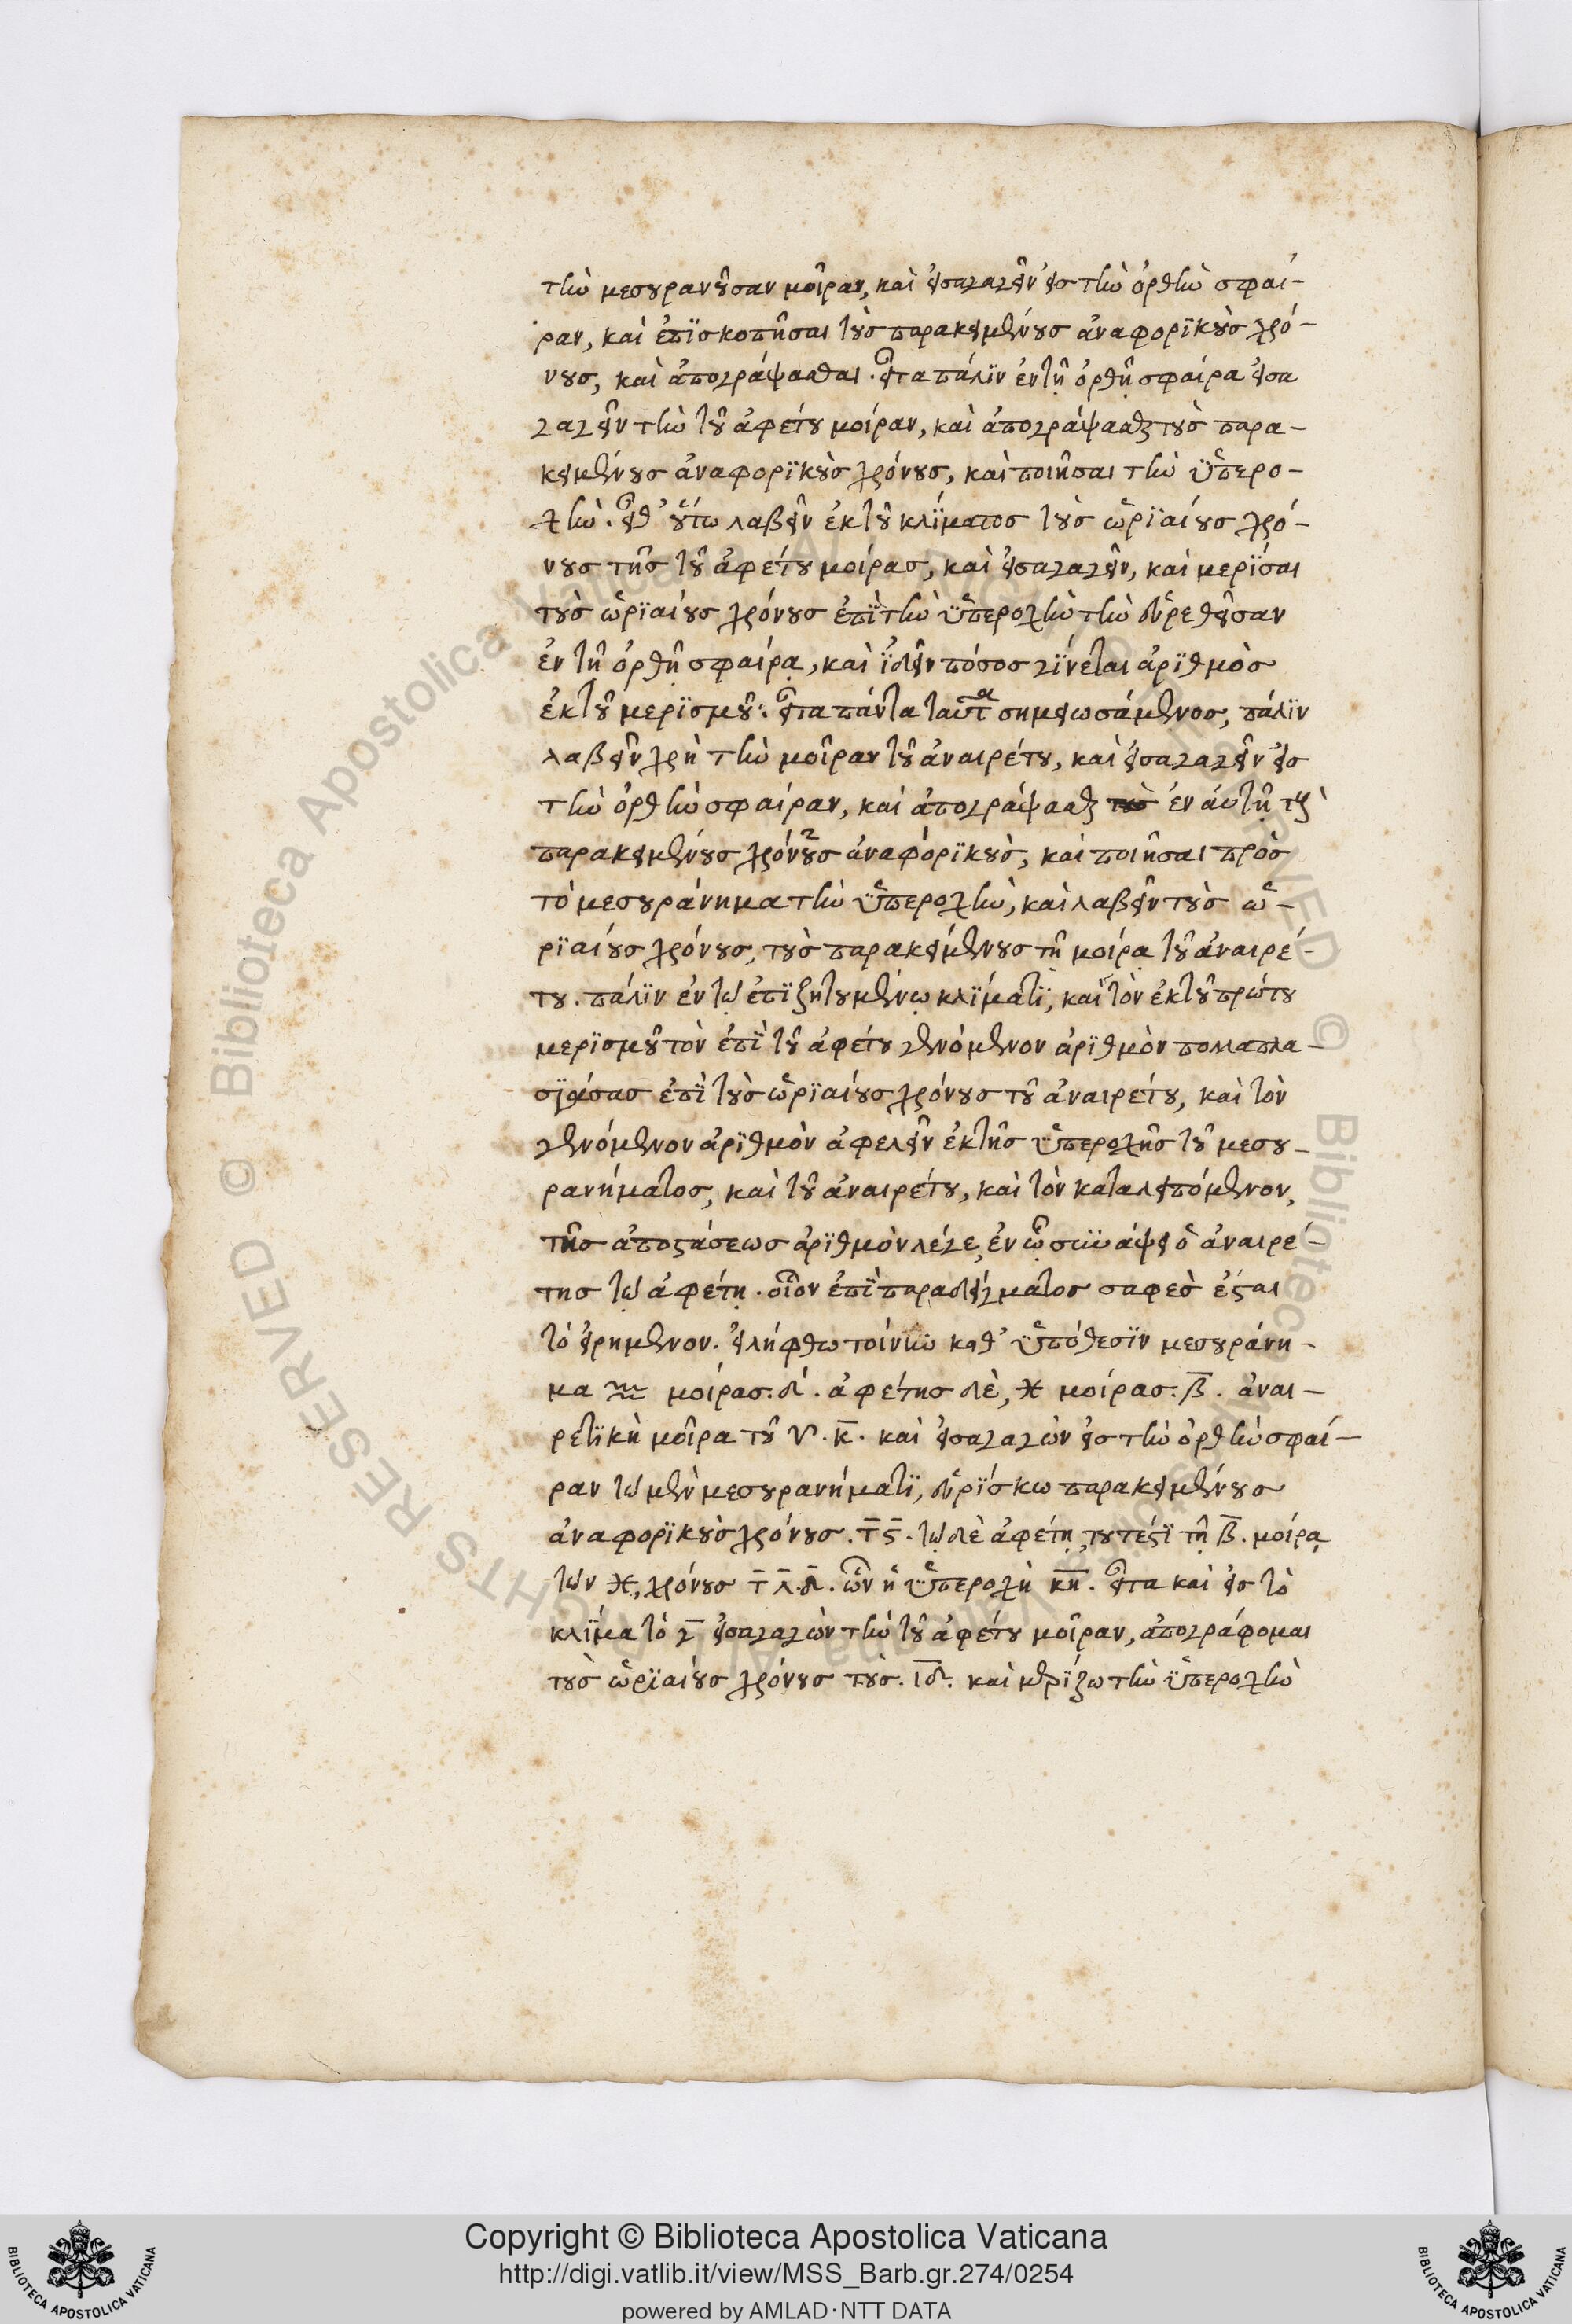 τὴν μεσουρανοῦσαν μοῖραν, καὶ εἰσαγαγεῖν εἰς τὴν ὀρθὴν σφαί-
ραν, καὶ ἐπϊσκοπῆσαι τοὺς παρακειμένους ἀναφορϊκοὺς χρό-
νους, καὶ ἀπογράψασθαι. εἶτα πάλϊν ἐν τῇ ὀρθῇ σφαίρα εἰσα
γαγεῖν τὴν τοῦ ἀφέτου μοίραν, καὶ ἀπογράψασθαι τοὺς παρα-
κειμένους ἀναφορϊκοὺς χρόνους, καὶ ποιῆσαι τὴν ὑπερο-
χὴν. εἶθ' οὕτω λαβεῖν ἐκ τοῦ κλϊματος τοὺς ὡρϊαίους χρό-
νους τῆς τοῦ ἀφέτου μοίρας, καὶ εἰσαγαγεῖν, καὶ μερϊσαι
τοὺς ὡρϊαίους χρόνους ἐπϊ τὴν ὑπεροχὴν τὴν εὑρεθεῖσαν
ἐν τῇ ὀρθῇ σφαίρᾳ, καὶ ἰδεῖν πόσος γϊνεται ἀρϊθμὸς
ἐκ τοῦ μερϊσμοῦ. εἶτα πάντα ταῦτα σημειωσάμενος, πάλϊν
λαβεῖν χρὴ τὴν μοῖραν τοῦ ἀναιρέτου, καὶ εἰσαγαγεῖν εἰς
τὴν ὀρθὴν σφαίραν, καὶ ἀπογράψασθαι ἐν αὐτῇ τοὺς
παρακειμένους χρόνους ἀναφορϊκοὺς, καὶ ποιῆσαι πρὸς
τὸ μεσουράνημα τὴν ὑπεροχὴν, καὶ λαβεῖν τοὺς ὡ-
ρϊαίους χρόνους, τοὺς παρακειμένους τῇ μοίρᾳ τοῦ ἀναιρέ-
του. πάλϊν ἐν τῷ ἐπϊζητουμένῳ κλϊματϊ, καὶ τὸν ἐκ τοῦ πρώτου
μερϊσμοῦ τὸν ἐπϊ τοῦ ἀφέτου γενόμενον ἀρϊθμὸν πολλαπλα-
σϊάσας ἐπϊ τοὺς ὡρϊαίους χρόνους τοῦ ἀναιρέτου, καὶ τὸν
γενόμενον ἀρϊθμὸν ἀφελεῖν ἐκ τῆς ὑπεροχῆς τοῦ μεσου-
ρανήματος, καὶ τοῦ ἀναιρέτου, καὶ τὸν καταλειπόμενον,
τῆς ἀποστάσεως ἀρϊθμὸν λέγε, ἐν ᾧ συνάψει ὁ ἀναιρέ-
της τῷ ἀφέτῃ. οἷον ἐπϊ παραδείγματος σαφὲς ἔσται
τὸ εἰρημένον. εἰλήφθω τοίνυν καθ' ὑπόθεσϊν μεσουράνη-
μα ♒ μοίρας. δ. ἀφέτης δὲ, ♓ μοίρας. β. ἀναι-
ρετϊκὴ μοῖρα τοῦ ♈. κ. καὶ εἰσαγαγὼν εἰς τὴν ὀρθὴν σφαί-
ραν τῷ μὲν μεσουρανήματϊ, εὑρϊσκω παρακειμένους
ἀναφορϊκοὺς χρόνους. τς. τῷ δὲ ἀφέτῃ, τουτέστϊ τῇ β. μοίρᾳ
τῶν ♓, χρόνους τλδ. ὧν ἡ ὑπεροχὴ κη. εἶτα καὶ εἰς τὸ
κλϊμα τὸ γ εἰσαγαγὼν τὴν τοῦ ἀφέτου μοῖραν, ἀπογράφομαι
τοὺς ὡρϊαίους χρόνους τοὺς. ιδ. καὶ μερϊζω τὴν ὑπεροχὴν
Copyright © Biblioteca Apostolica Vaticana
http://digi.vatlib.it/view/MSS_Barb.gr.274/0254
powered by AMLAD·NTT DATA